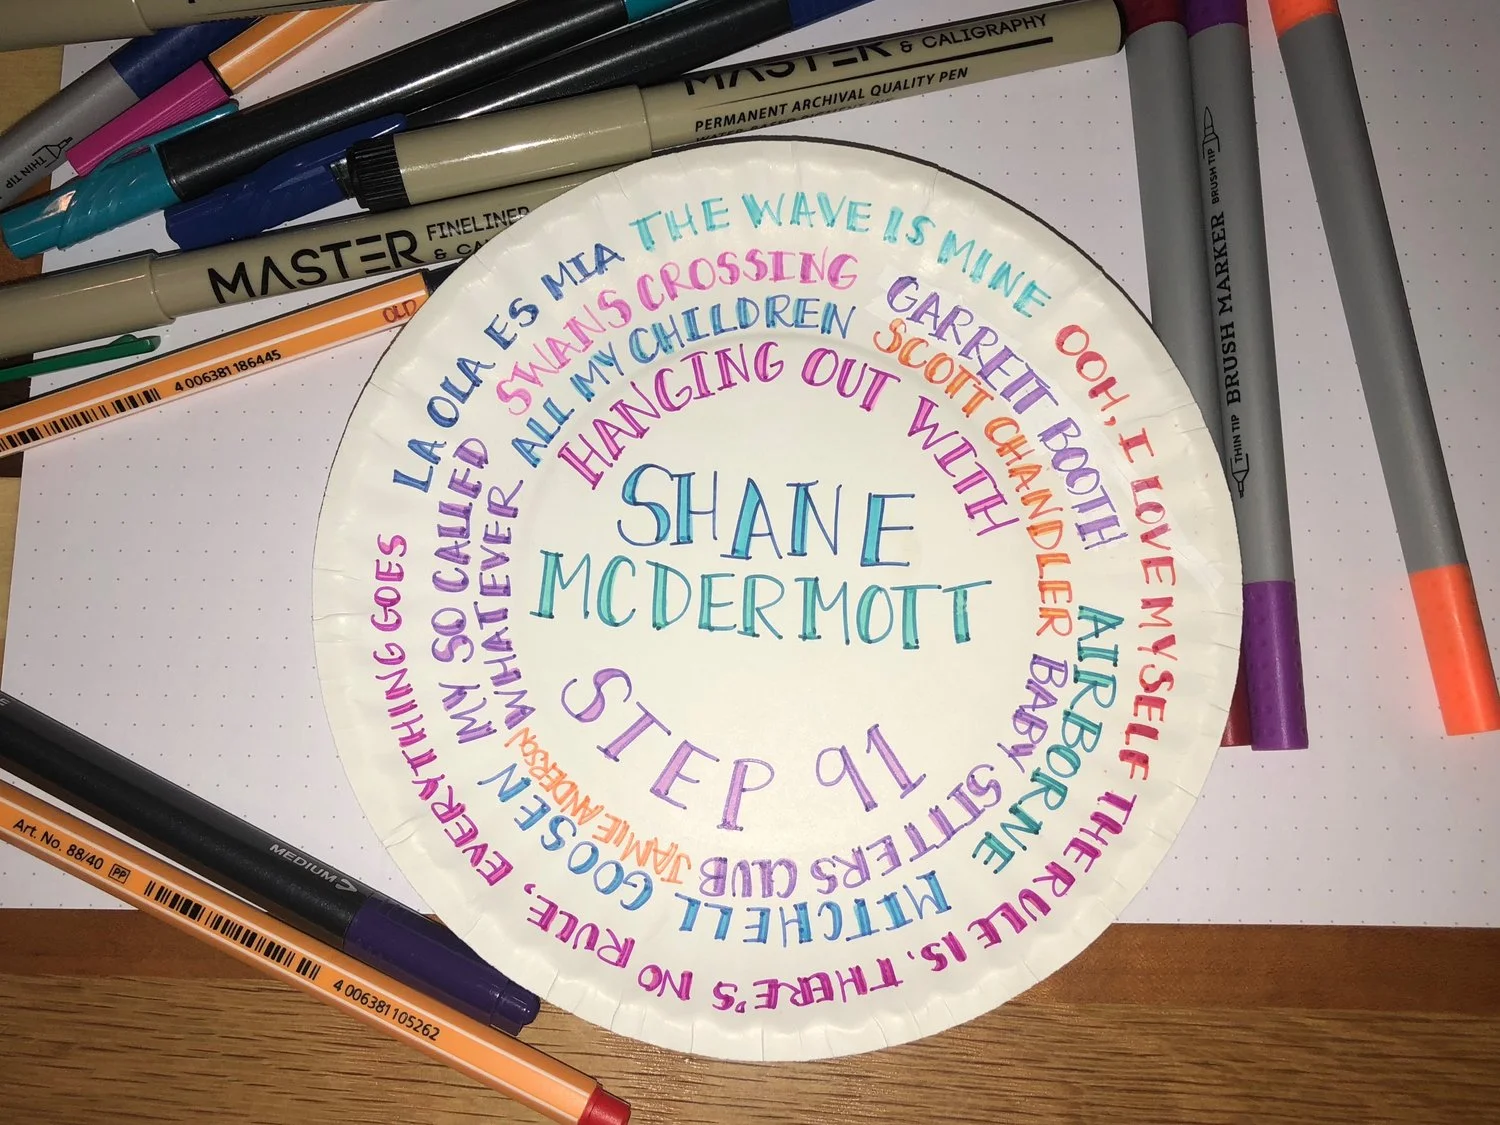 MASTER & CALIGRAPHY
PERMANENT ARCHIVAL QUALITY PEN
THIN TIP
MASTER FINELINER
OLD
4 006381 186445
THIN TIP BRUSH MARKER BRUSH TIP
LA OLA ES MIA
THE WAVE IS MINE
OOH, I LOVE MYSELF
THE RULE IS, THERE'S NO RULE, EVERYTHING GOES
SWANS CROSSING
GARRETT BOOTH
AIRBORNE
MITCHELL GOOSEN
MY SO CALLED
ALL MY CHILDREN
SCOTT CHANDLER
BABY SITTERS CLUB
JAMIE ANDERSON
WHATEVER
HANGING OUT WITH
SHANE
MCDERMOTT
STEP 91
MEDIUM
Art. No. 88/40 PP
4 006381 105262